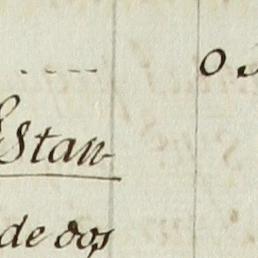 Estan-
de dos